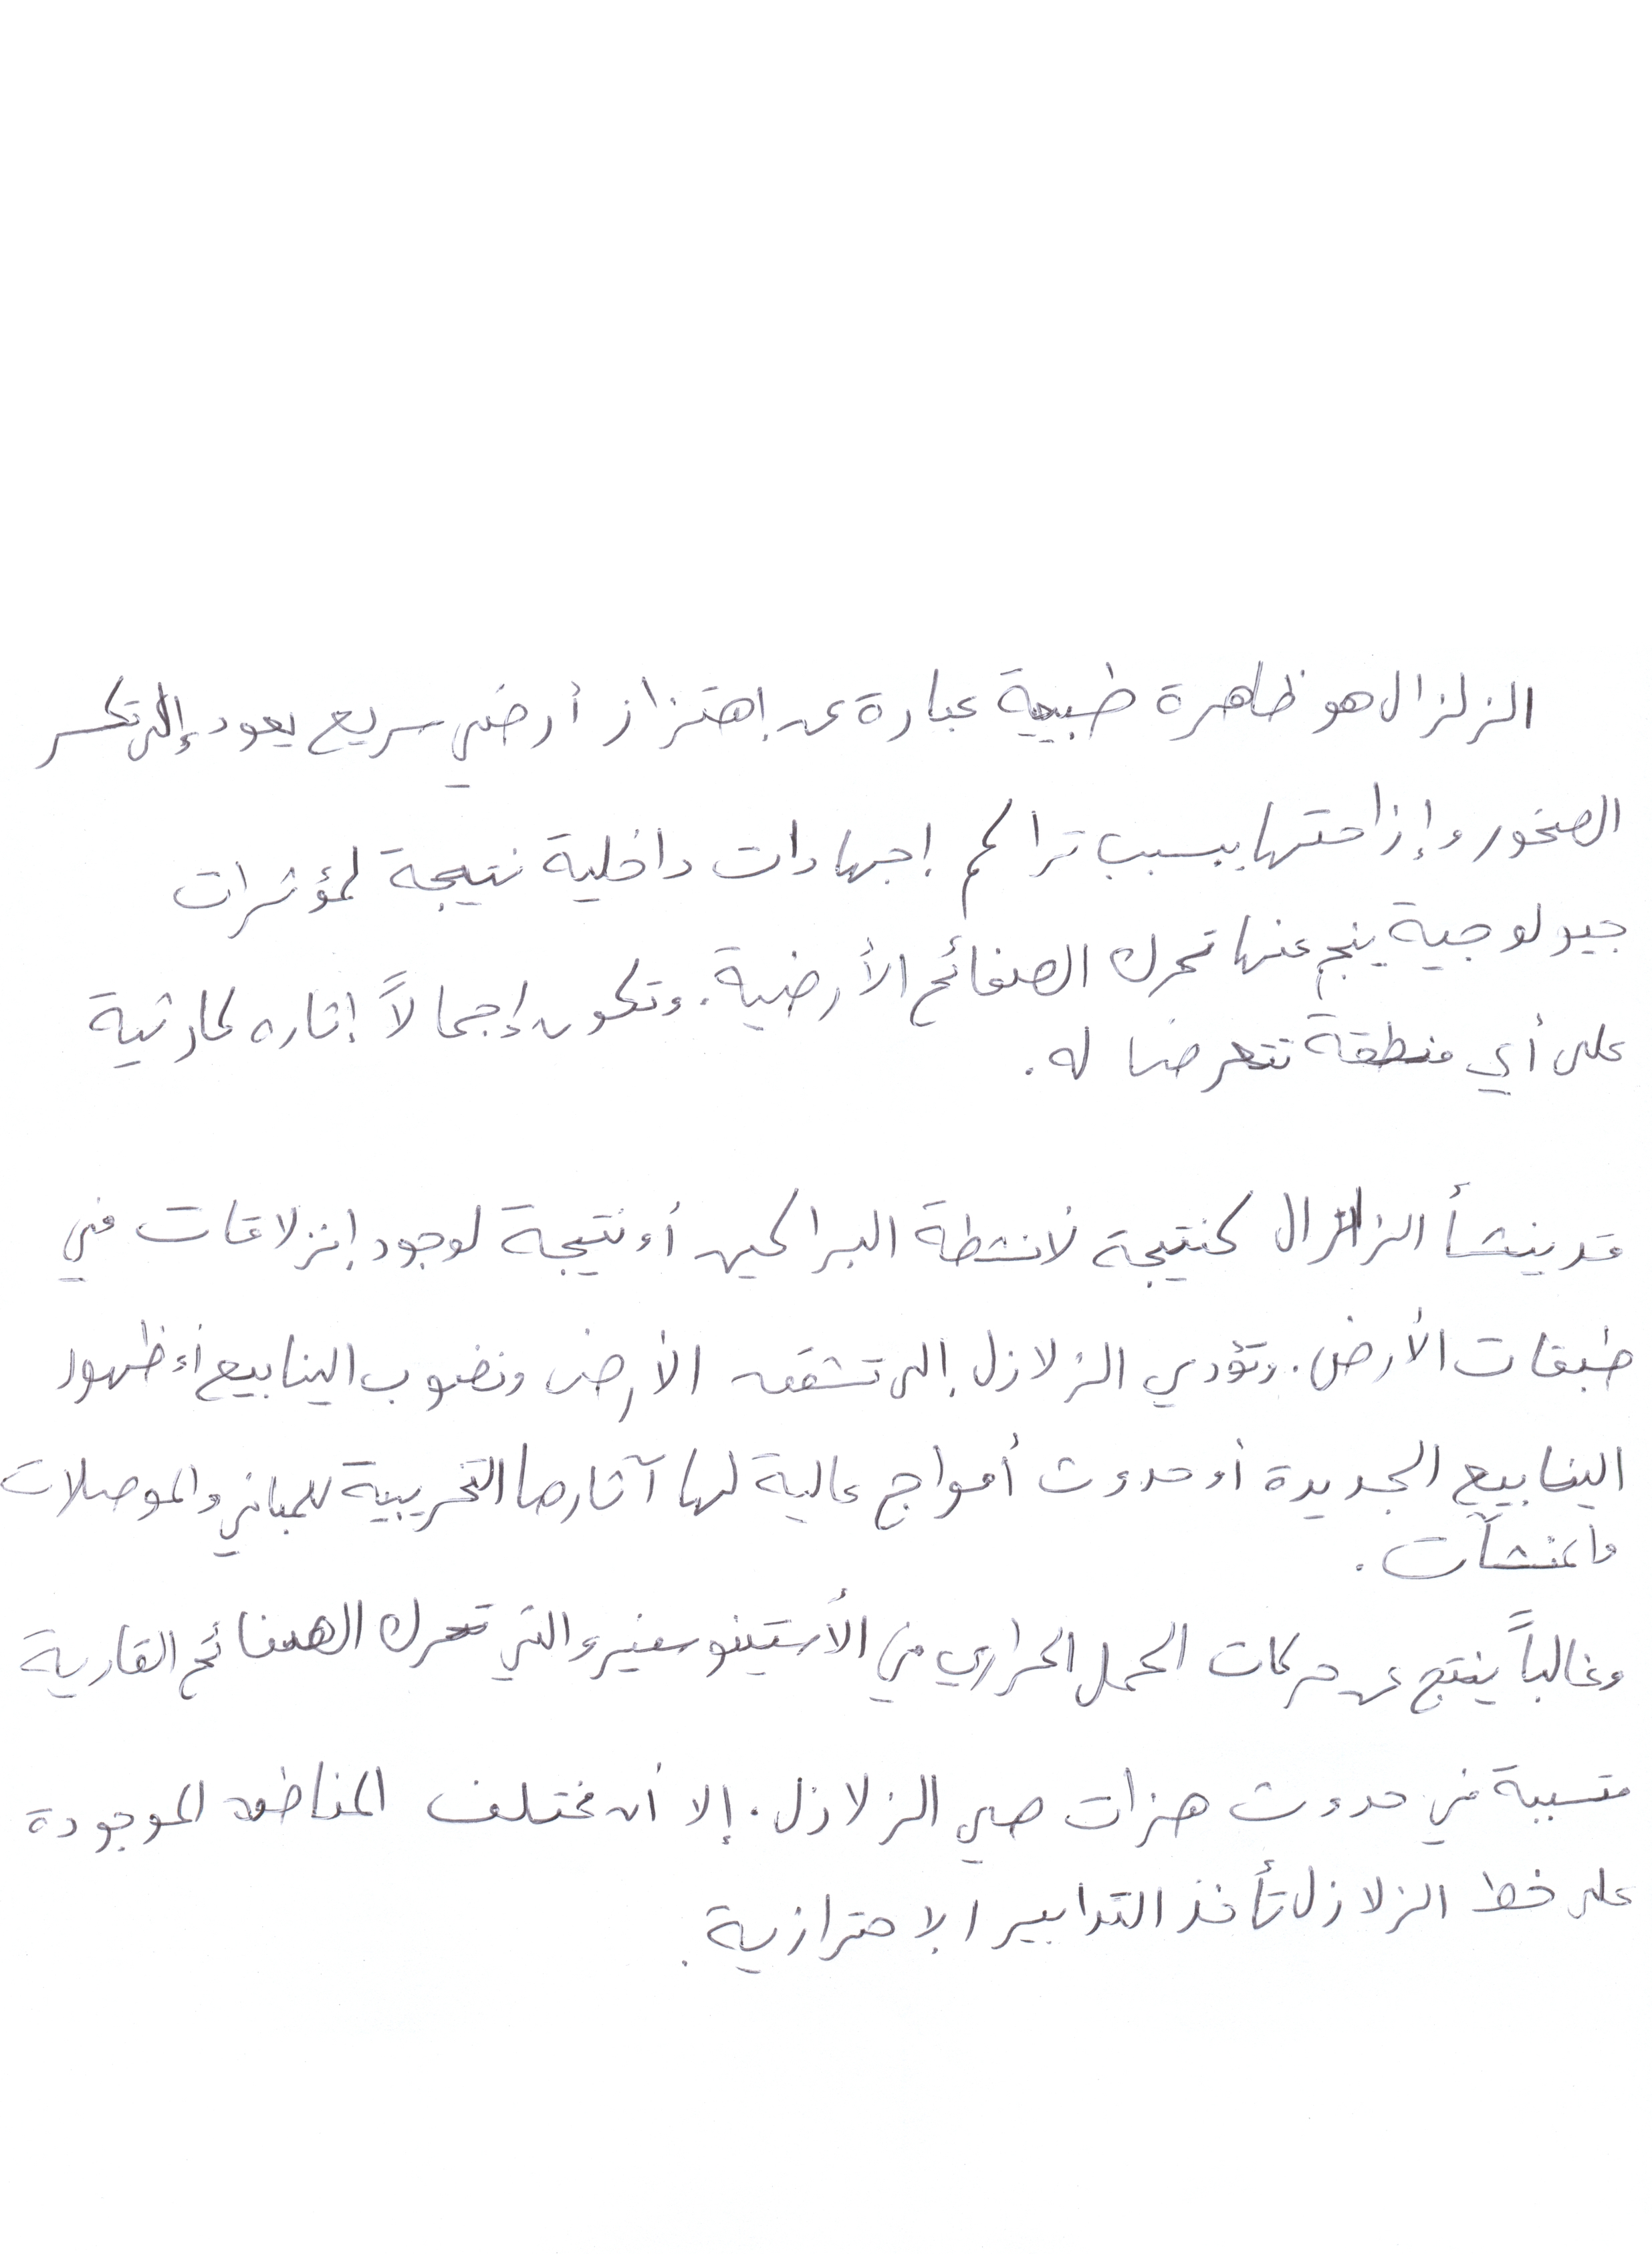 الزلزال هو ظاهرة طبيعية عبارة عن إهتزاز أرضي سريع يعود إلى تكسر
الصخور وإزاحتها بسبب تراكم إجهادات داخلية نتيجة لمؤثرات
جيولوجية ينجم عنها تحرك الصفائح الأرضية. وتكون إجمالاً إثاره كارثية
على أي منطقة تتعرضا له.
قد ينشأ الزلزال كنتيجة لأنشطة البراكين أو نتيجة لوجود إنزلاقات في
طبقات الأرض. وتؤدي الزلازل إلى تشقق الأرض ونضوب الينابيع أو ظهور
الينابيع الجديدة أو حدوث أمواج عالية لها آثارها التخريبية للمباني والموصلات
والمنشآت.
وغالباً ينتج عن حركات الحمل الحراري في الأستينوسفير والتي تحرك الصفائح القارية
متسببة في حدوث هزات هي الزلازل. إلا أن مختلف المناطق الموجودة
على خط الزلازل تأخذ التدابير الإحترازية.